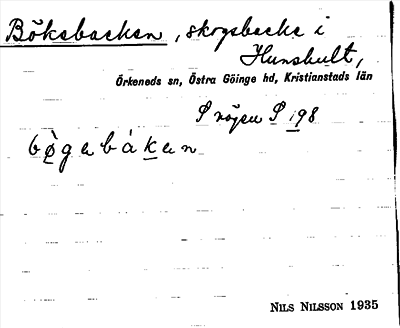 Bökebacken, skogsbacke i
Hunshult,
Örkeneds sn, Östra Göinge hd, Kristianstads län
S 198
bø̀gabàkan
NILS NILSSON 1935